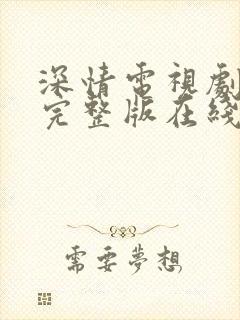 深情電視劇
完整版在綫
需要夢想